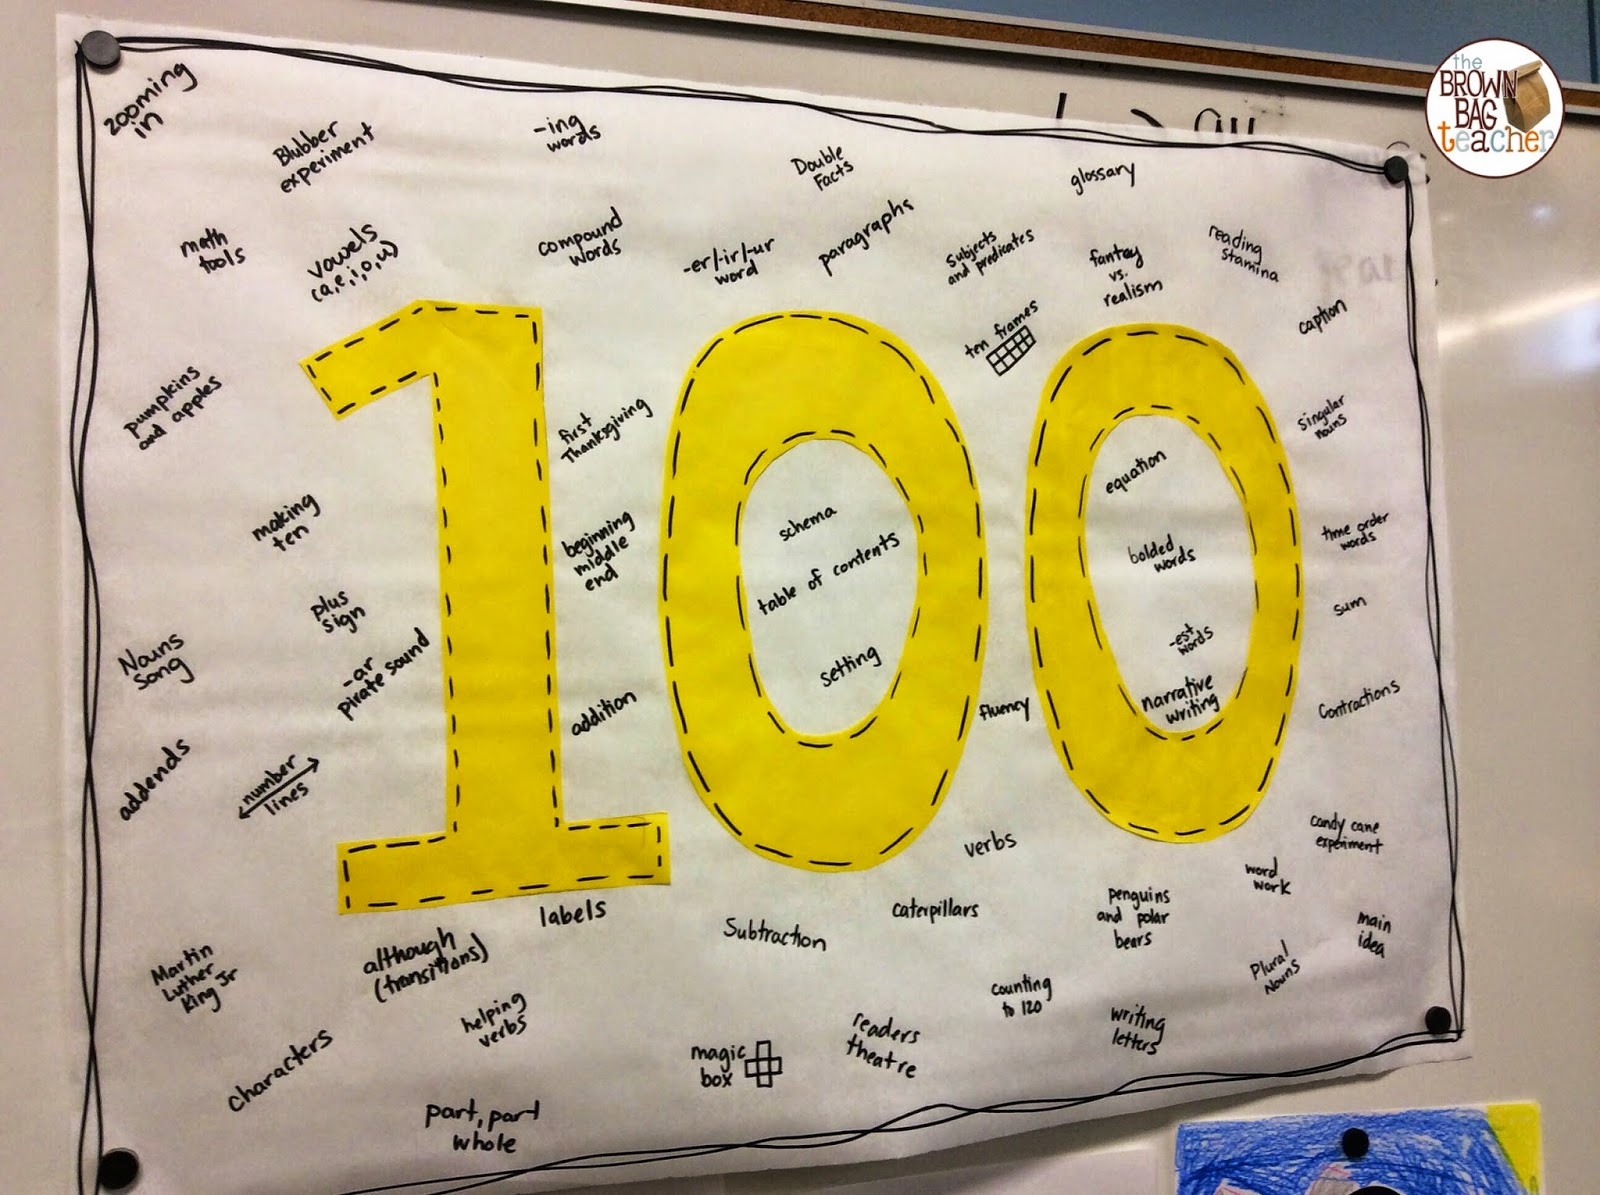 the
BROWN
BAG
teacher
zooming
in
Blubber
experiment
-ing
words
Double
Facts
glossary
math
tools
vowels
(a,e,i,o,u)
compound
words
-er/-ir/-ur
word
paragraphs
Subjects
and predicates
fantasy
vs.
realism
reading
stamina
ten frames
caption
pumpkins
and apples
first
Thanksgiving
100
equation
singular
nouns
making
ten
beginning
middle
end
schema
table of contents
setting
bolded
words
time order
words
plus
sign
-est
words
sum
Nouns
Song
-ar
pirate sound
addition
fluency
narrative
writing
Contractions
addends
number
lines
verbs
candy cane
experiment
labels
Subtraction
caterpillars
penguins
and polar
bears
word
work
main
idea
Martin
Luther
King Jr
although
(transitions)
helping
verbs
counting
to 120
Plural
Nouns
characters
magic
box
readers
theatre
writing
letters
part, part
whole